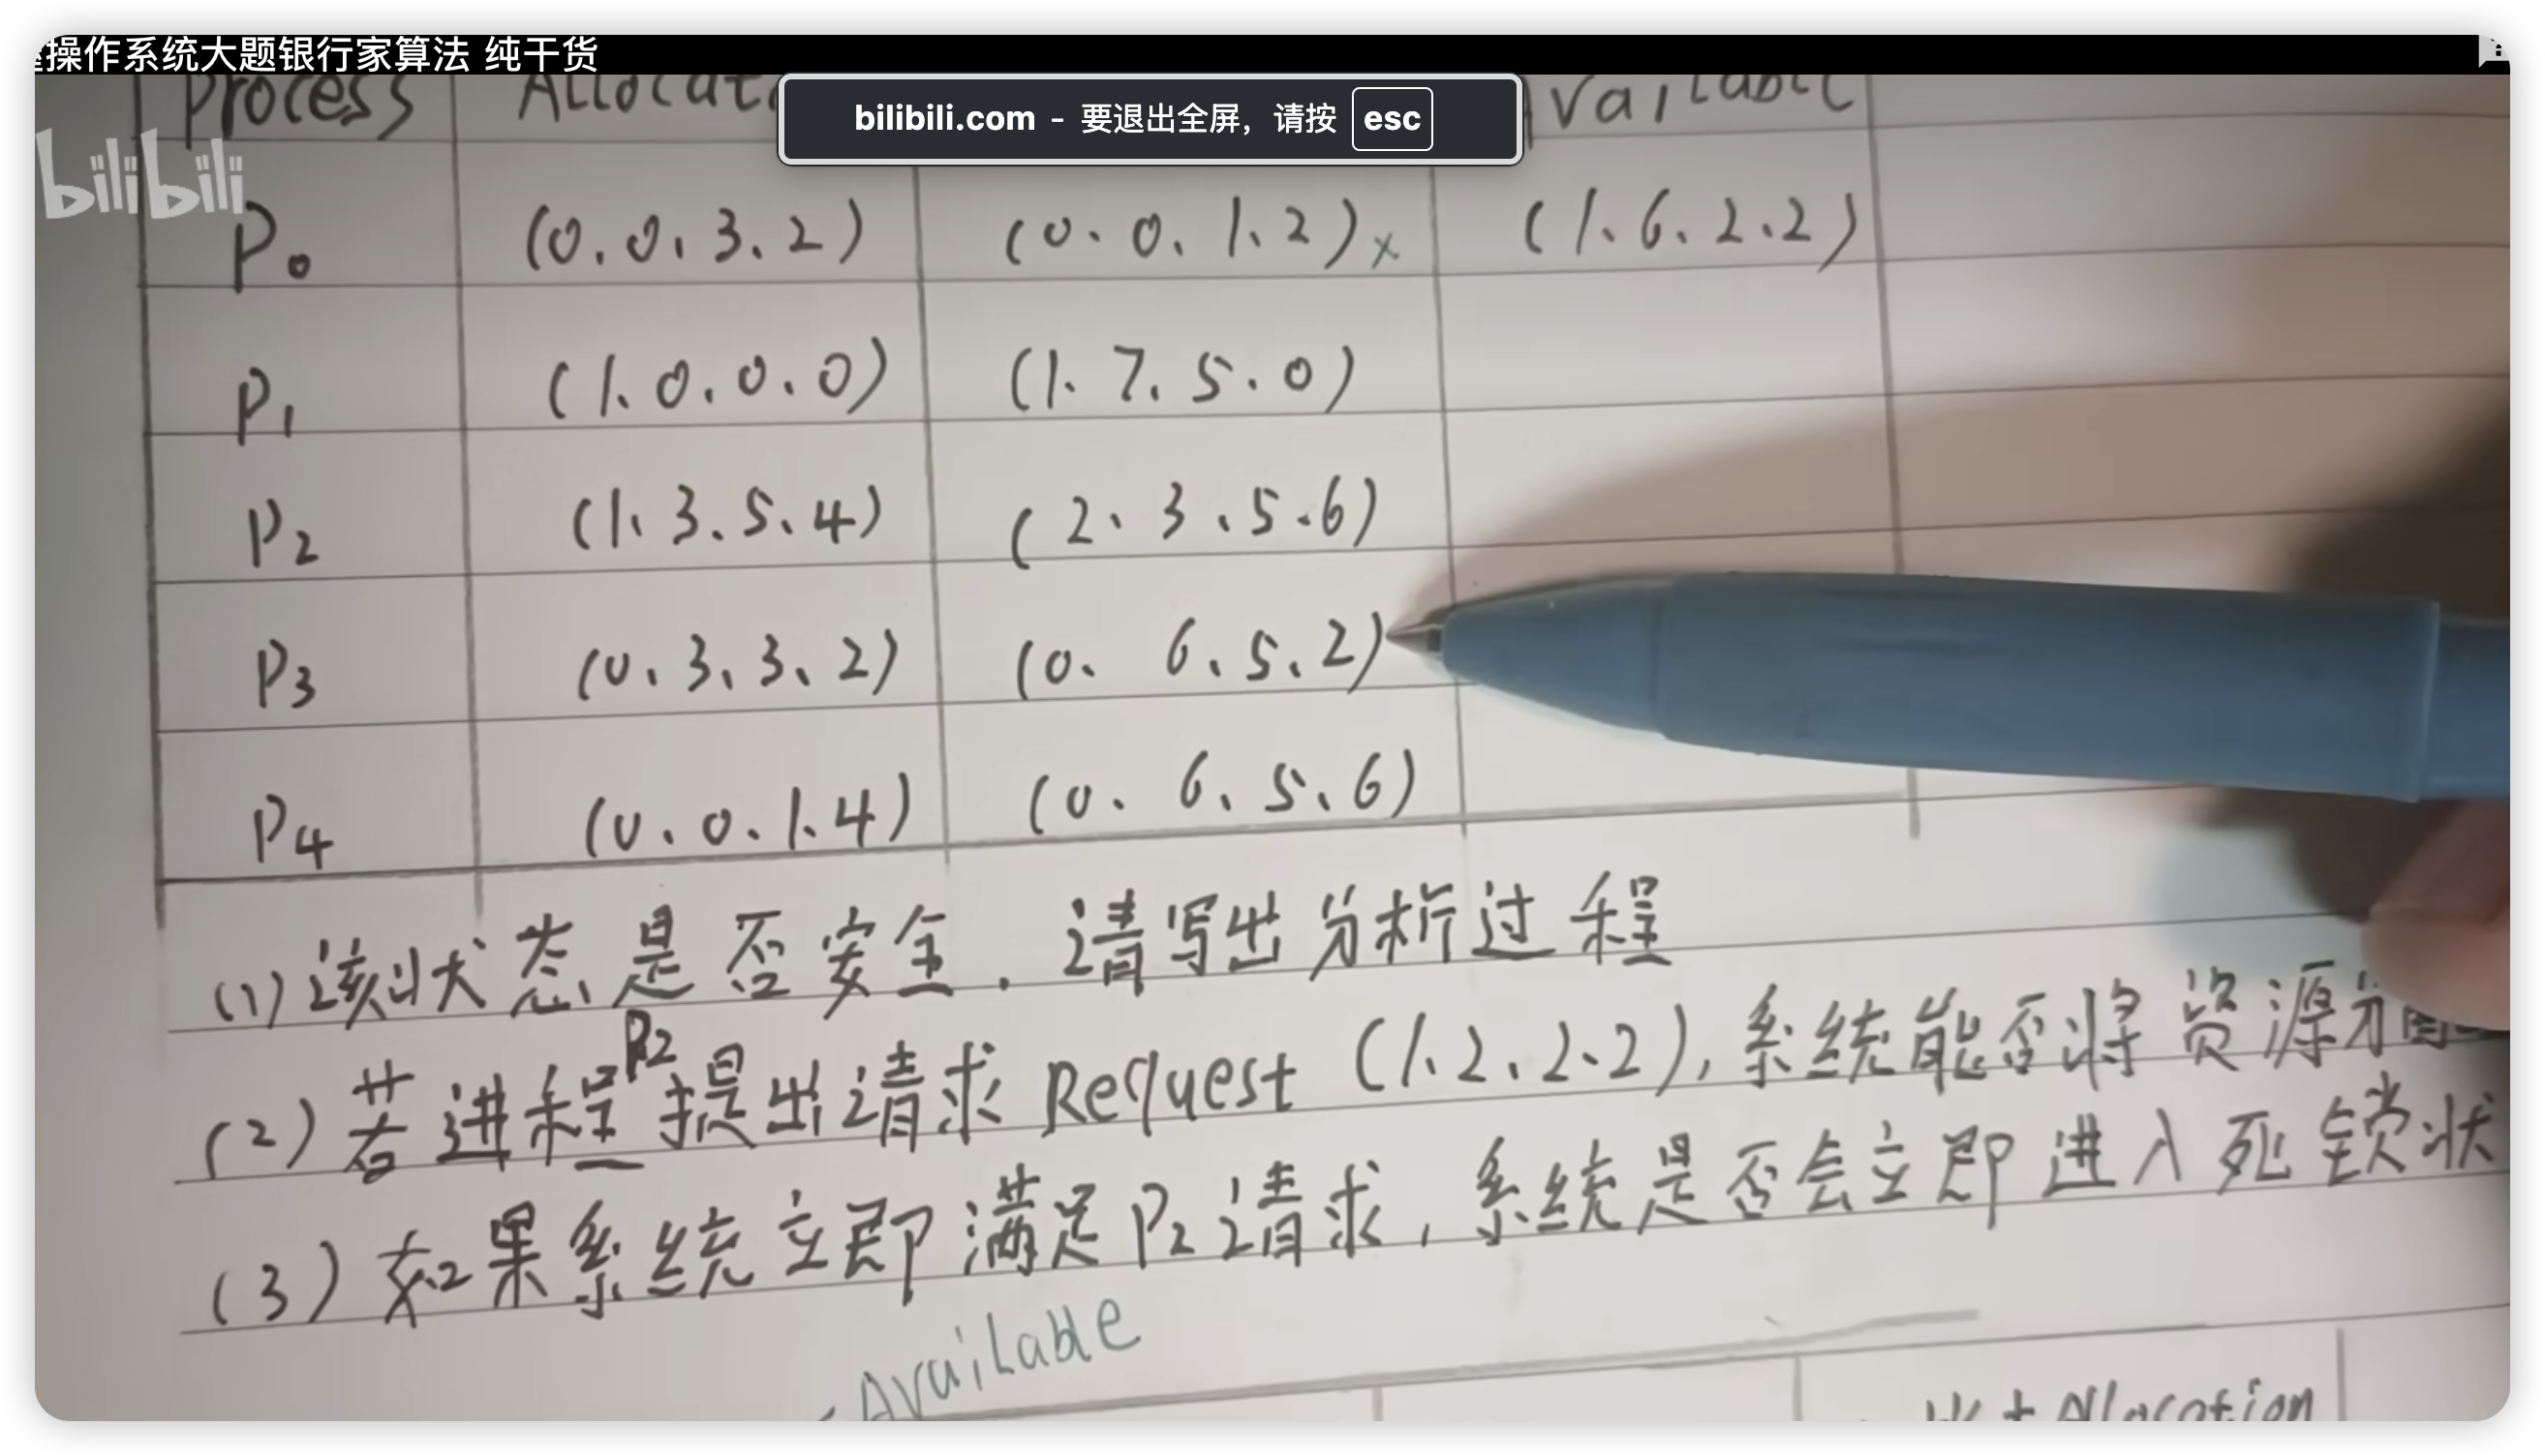 操作系统大题银行家算法 纯干货
bilibili.com - 要退出全屏，请按 esc
bilibili
Process Available
P0 (0、0、3、2) (0、0、1、2)× (1、6、2、2)
P1 (1、0、0、0) (1、7、5、0)
P2 (1、3、5、4) (2、3、5、6)
P3 (0、3、3、2) (0、6、5、2)
P4 (0、0、1、4) (0、6、5、6)
(1) 该状态是否安全．请写出分析过程
(2) 若进程P2提出请求 Request (1、2、2、2)，系统能否将资源
(3) 如果系统立即满足P2请求，系统是否会立即进入死锁状
Available
Allocation